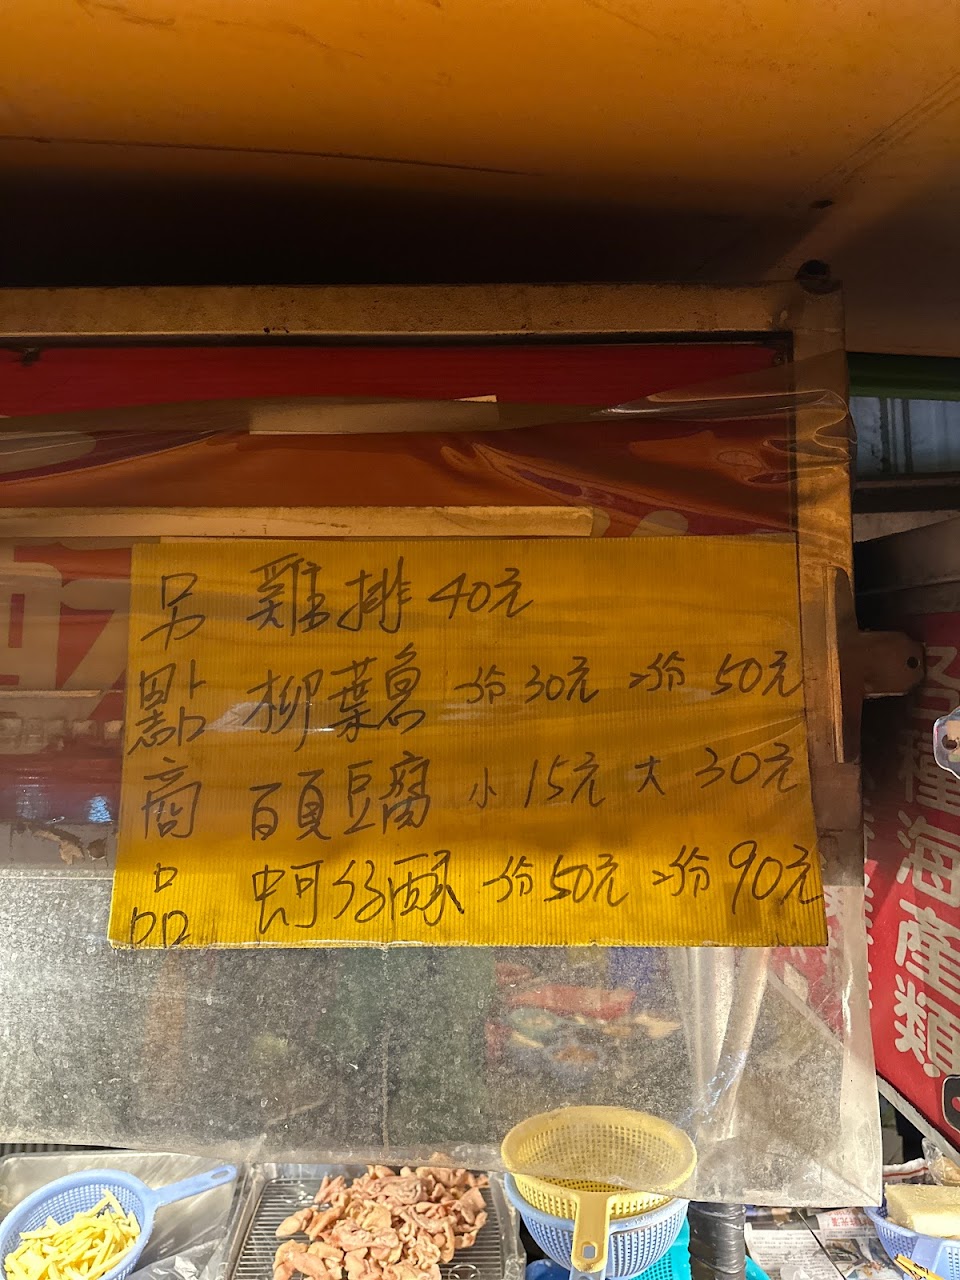 另點商品
雞排 40元
柳葉魚 份30元 2份 50元
百頁豆腐 小 15元 大 30元
蚵仔酥 份50元 2份 90元
各種海產類